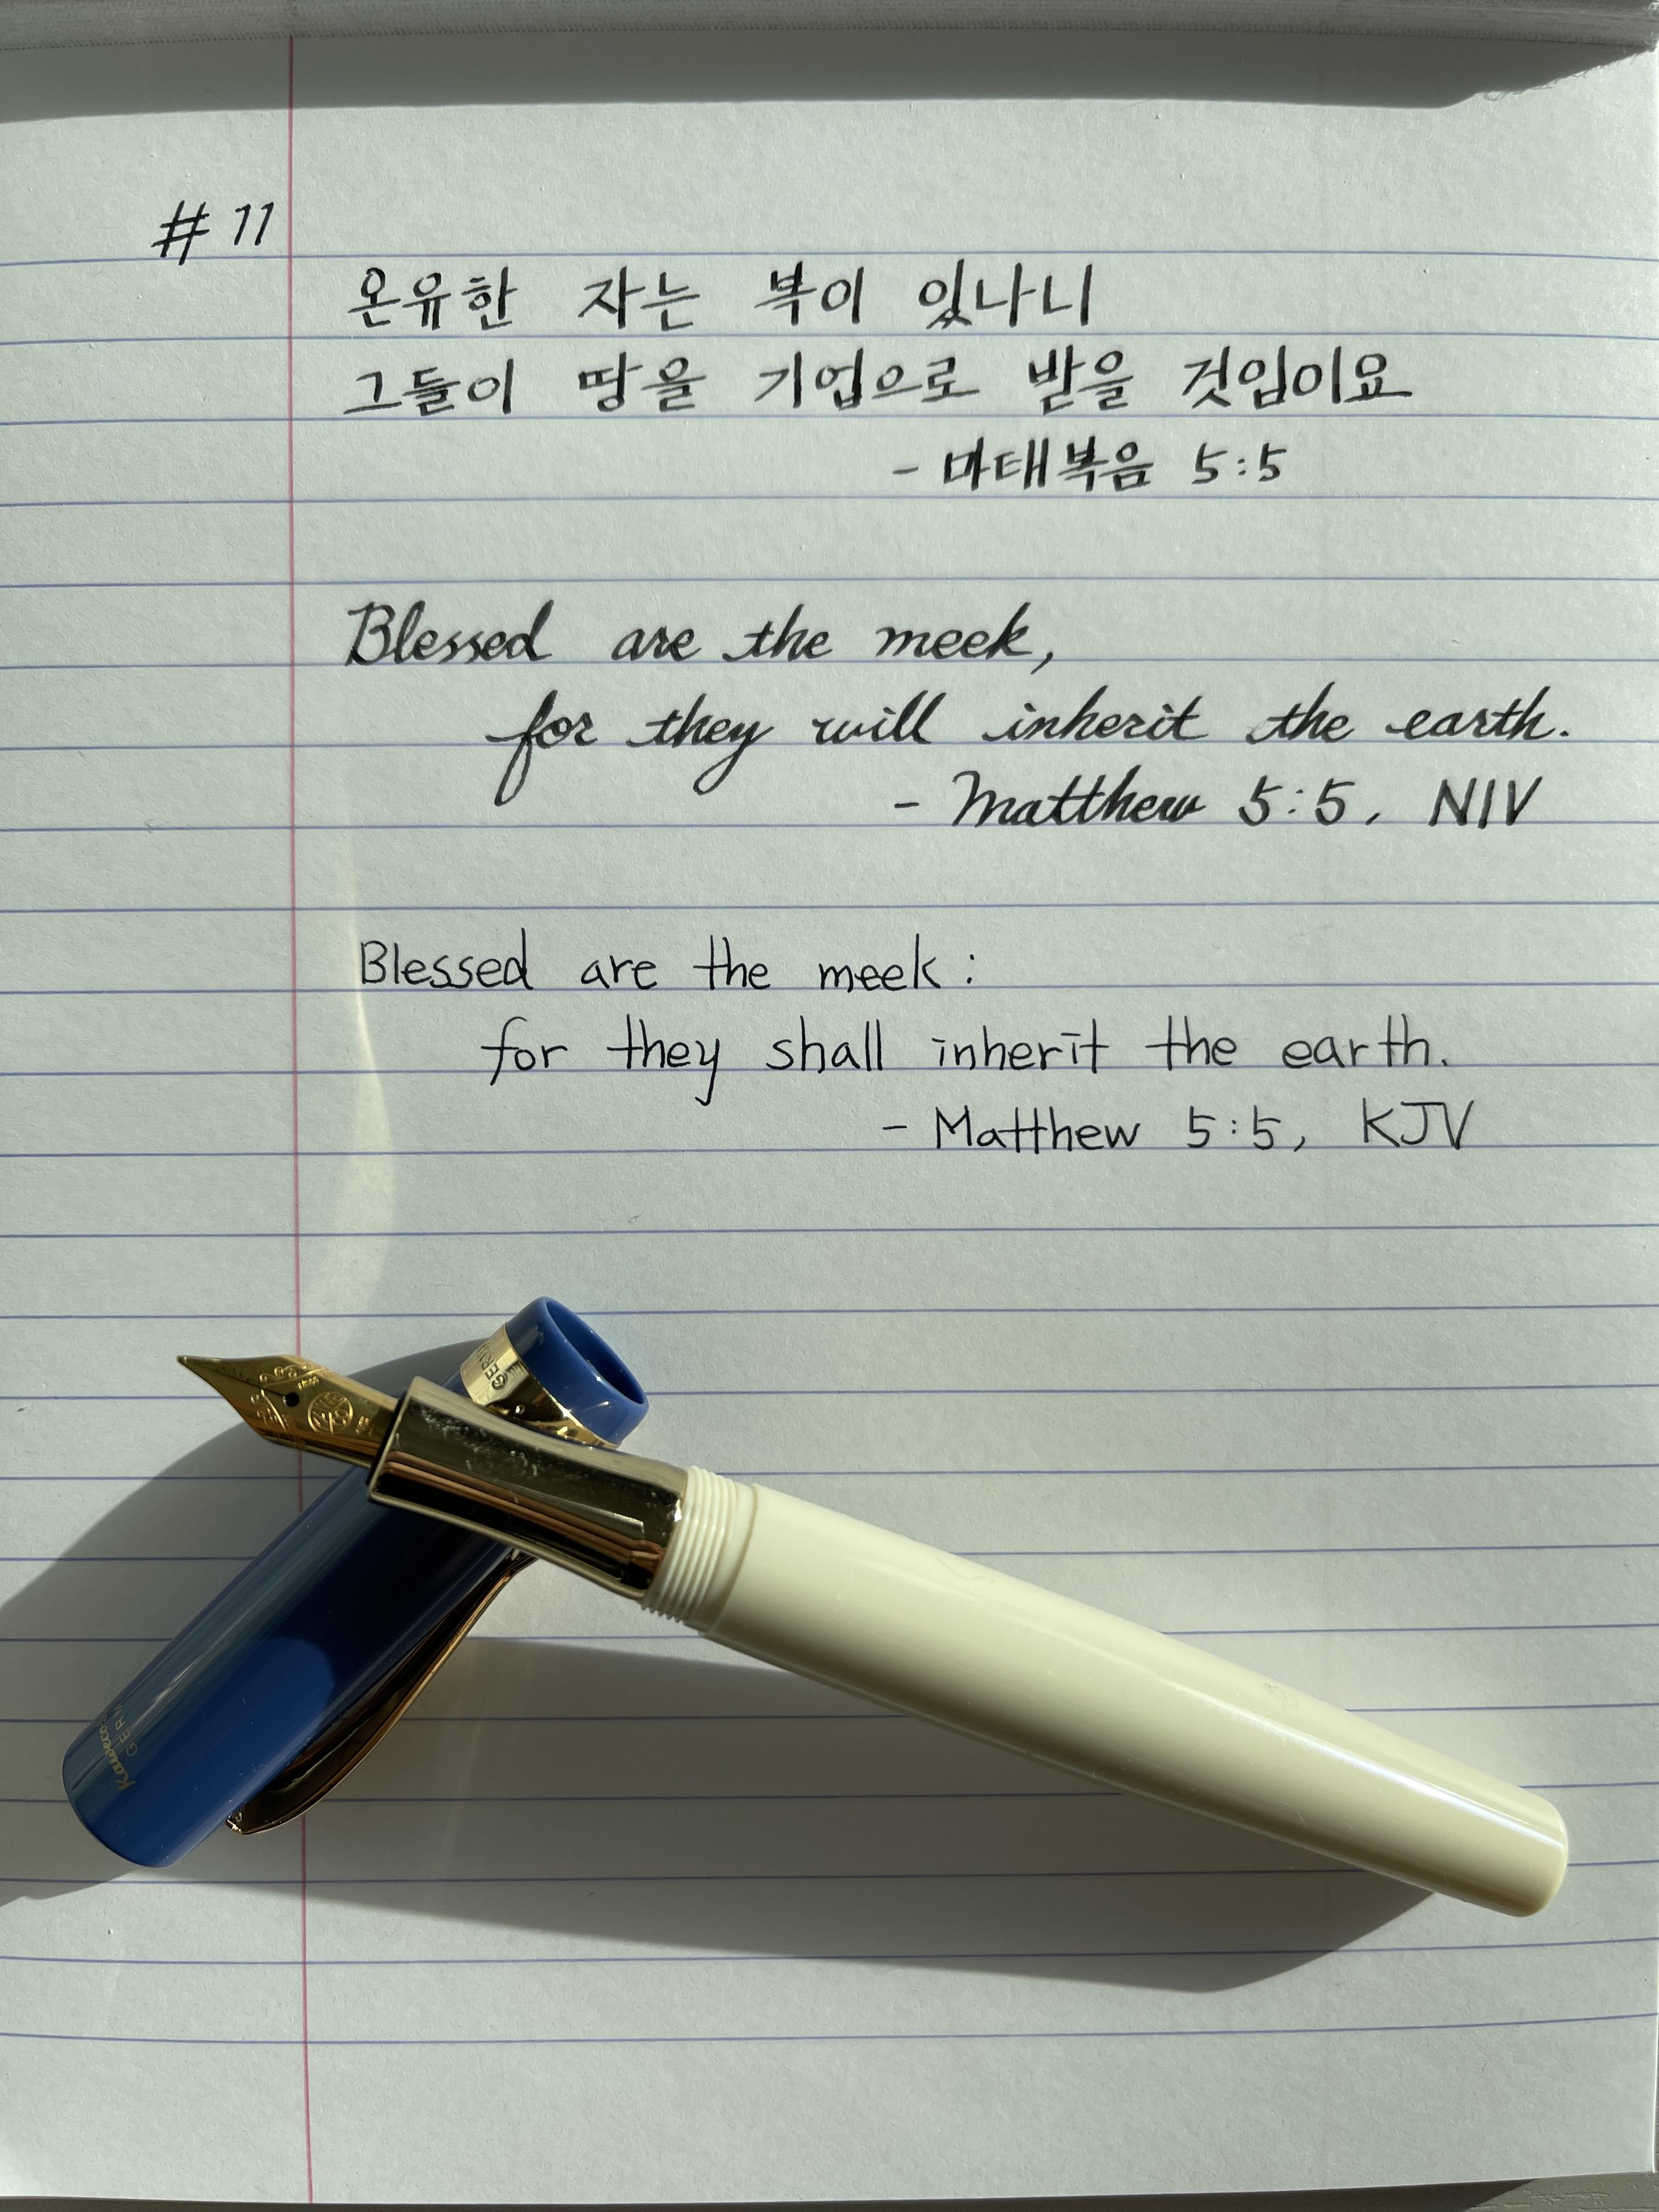 #11
온유한 자는 복이 있나니
그들이 땅을 기업으로 받을 것입이요
- 마태복음 5:5
Blessed are the meek,
for they will inherit the earth.
- Matthew 5:5, NIV
Blessed are the meek:
for they shall inherit the earth.
- Matthew 5:5, KJV
Kaweco